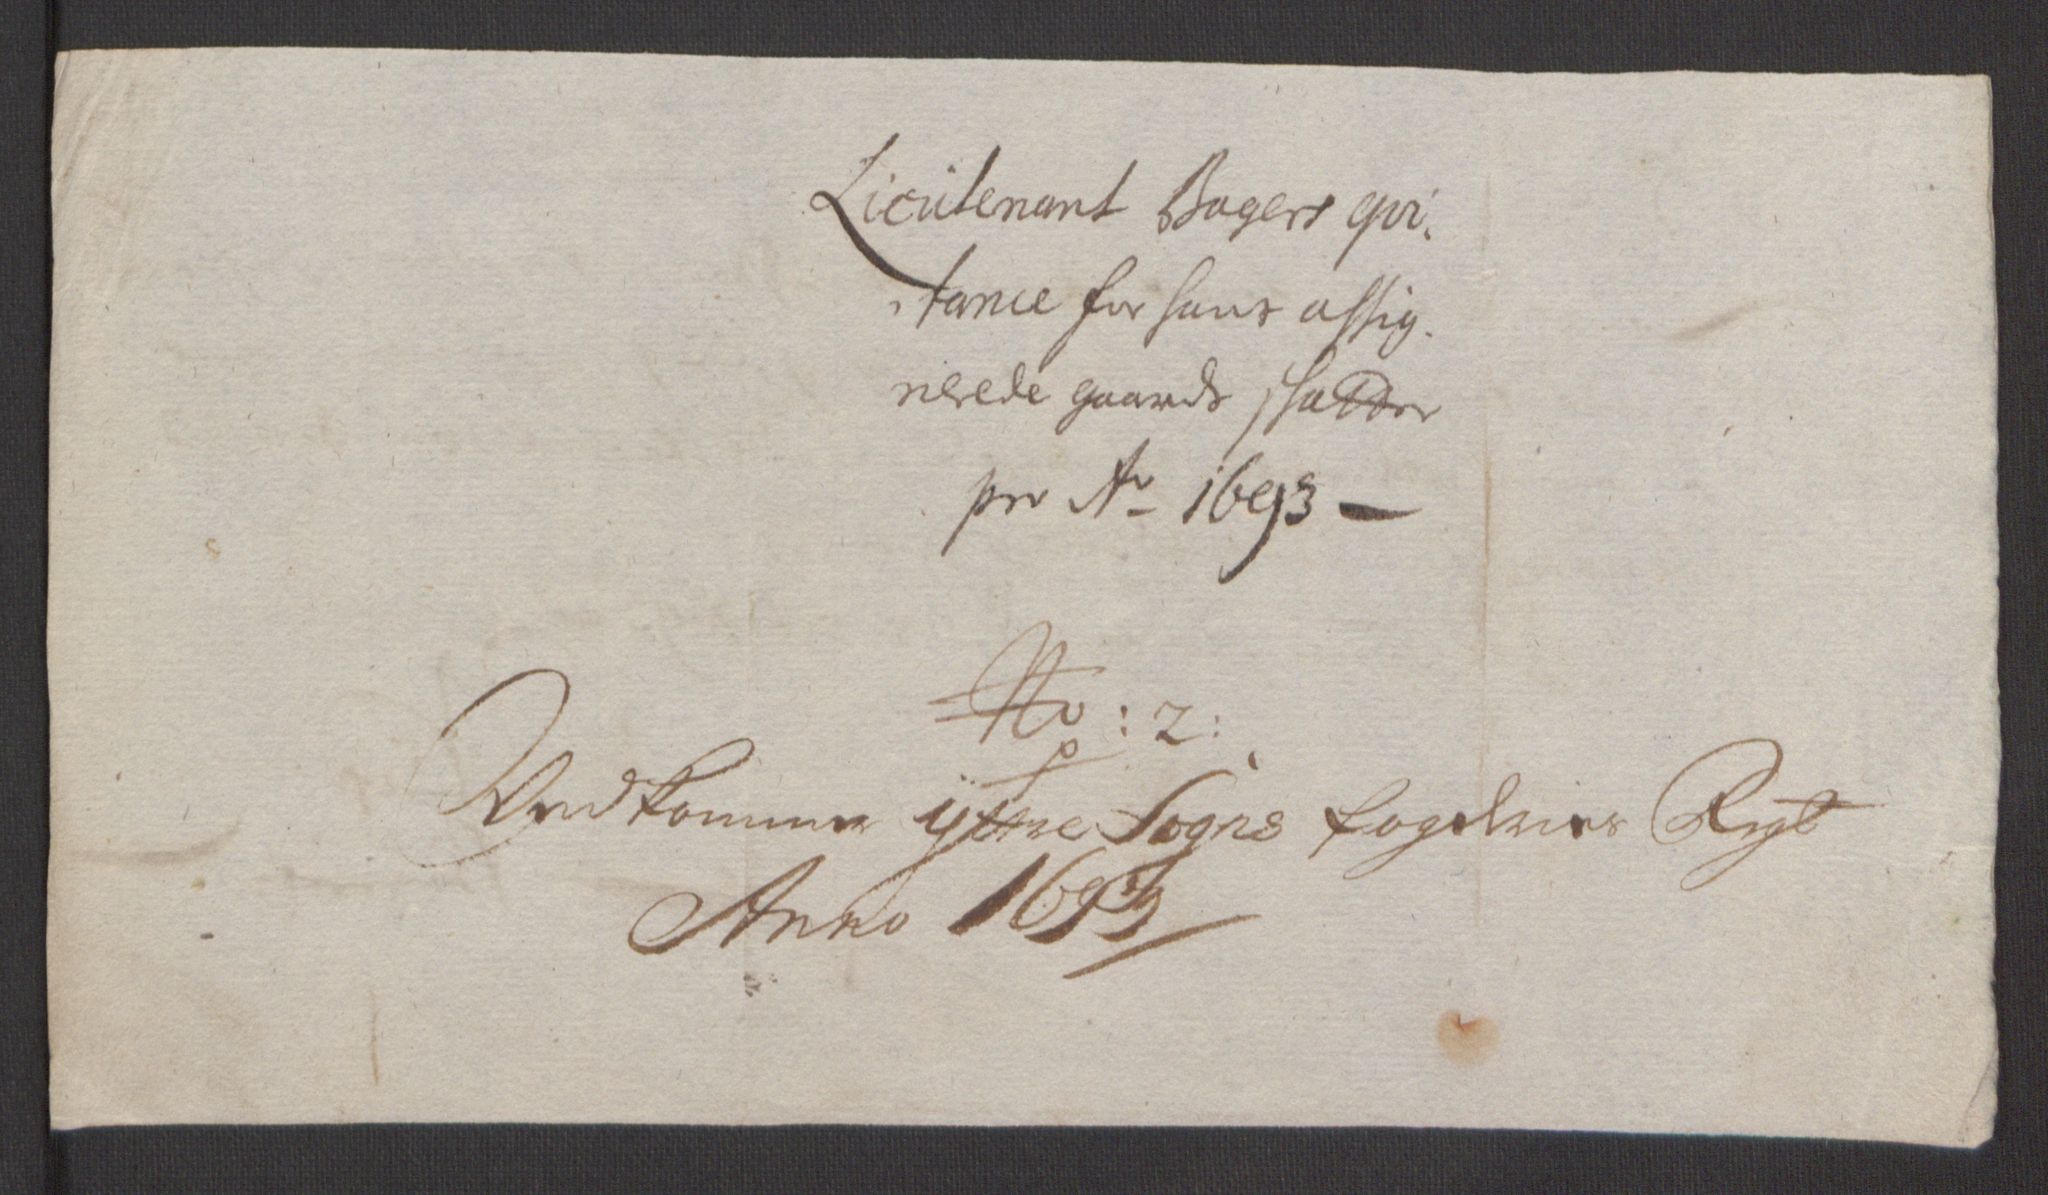 Lieutenant Bagers qvi,
tance for hans assig,
nerede gaards skatter
pro Ao 1693 —
No: 2:
Vedkommer ÿttre Sogns fogderies Regt
Anno 1693